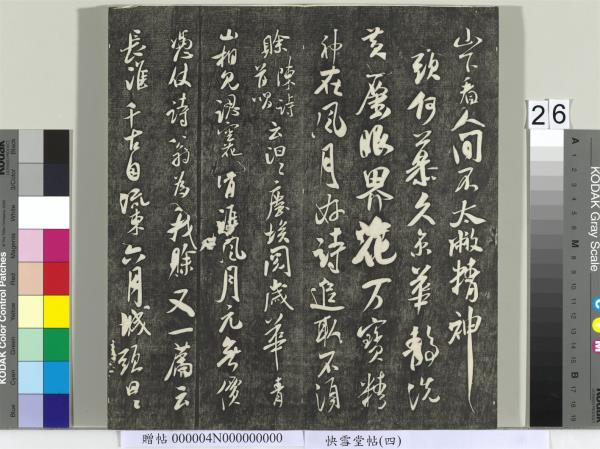 山下看人間不太嫩精神
頭何業久尔華靜洗
黃塵眼界花万寶精
神在風月好詩追取不須
賒陳詩云汩汩塵埃閱歲華青
山相見謬寒花何追風月元無價
憑仗詩翁為我賒又一篇云
長淮千古自流東六月城頭
26
KODAK Color Control Patches
Blue
Cyan
Green
Yellow
Red
Magenta
White
3/Color
Black
KODAK Gray Scale
A 1 2 3 4 5 6 M 8 9 10 11 12 13 14 15 B 17 18 19
C
Y
M
贈帖 000004N000000000
快雪堂帖(四)